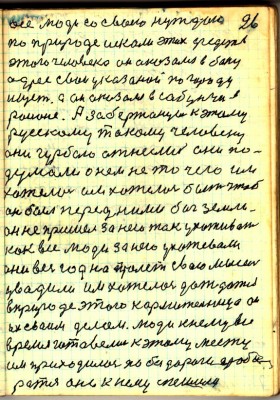 96
все люди со своею нуждою
по природе искали этих средств
этого человека он оказался в баку
адрес свой указаной по городу
ищет. а он оказался в сабунчи в
районе. А азербайжану к этому
русскому такому человеку
они грубо отнеслись они по-
думали о нем не то чего им
хотелось им хотелось быть чтоб
он был перед ними бог земли.
он не пришел за него так ухаживать
как все люди за него ухаживали
они все год на свою мысль
увадили им хотелось дождаться
в природе этого кормителица он
их своим делом. люди к нему все
время готовели к этому месту
им приходилось по ба дороги добе-
ратся они к нему спешили